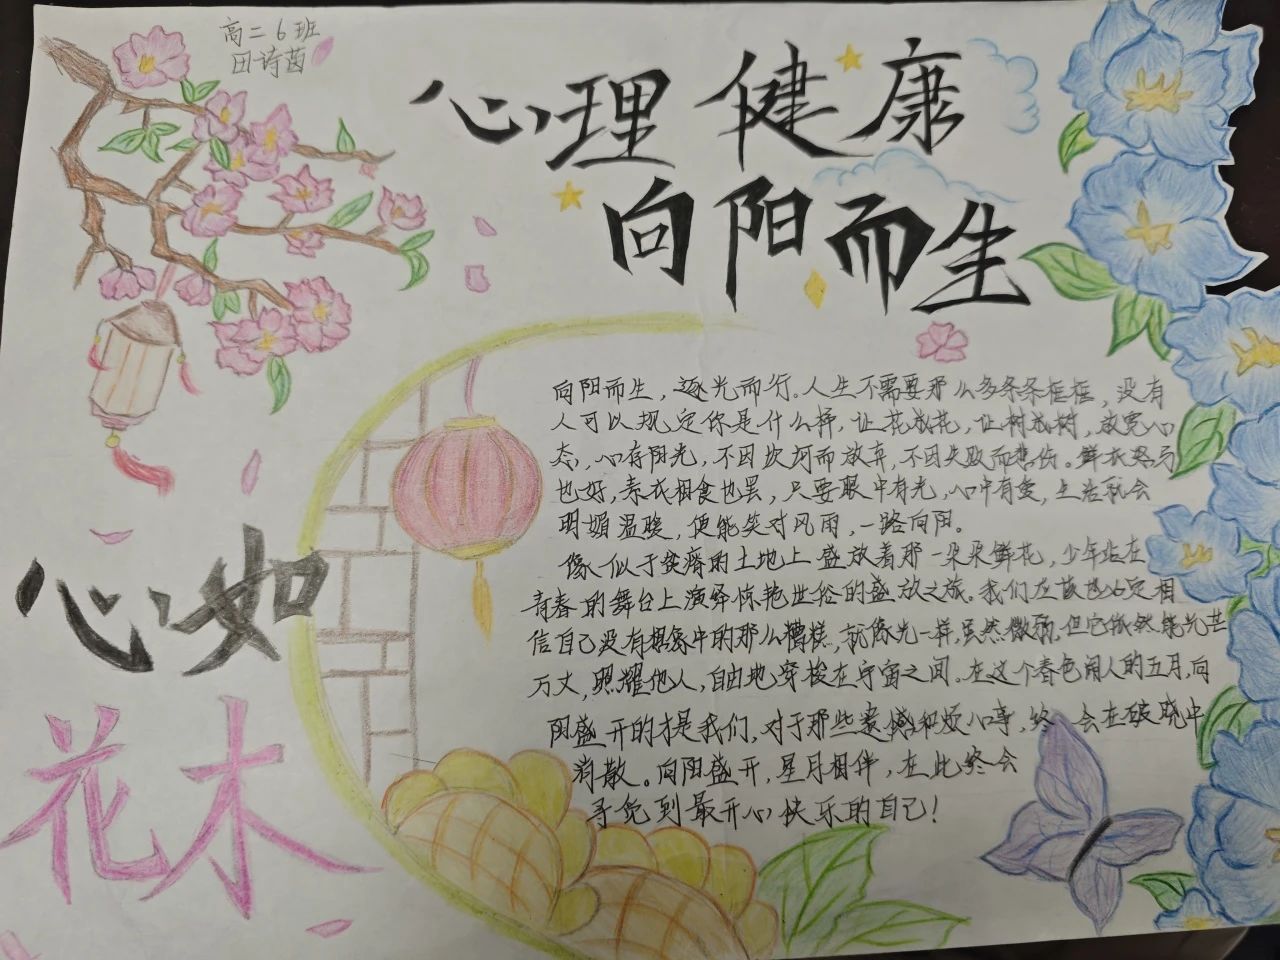 高二6班
田诗茵
心理健康
向阳而生
向阳而生，逐光而行。人生不需要那么多条条框框，没有
人可以规定你是什么样，让花成花，让树成树，放宽心
态，心存阳光，不因坎坷而放弃，不因失败而悲伤。鲜衣怒马
也好，素衣相食也罢，只要眼中有光，心中有爱，生活就会
明媚温暖，便能笑对风雨，一路向阳。
像似于贫瘠的土地上盛放着那一朵朵鲜花，少年站在
青春的舞台上演绎惊艳世俗的盛放之旅。我们应该也必定相
信自己没有想象中的那么糟糕，就像光一样，虽然微弱，但它依然能光芒
万丈，照耀他人，自由地穿梭在宇宙之间。在这个春色闹人的五月，向
阳盛开的才是我们，对于那些遗憾和烦心事，终会在破晓中
消散。向阳盛开，星月相伴，在此终会
寻觅到最开心快乐的自己！
心如
花木